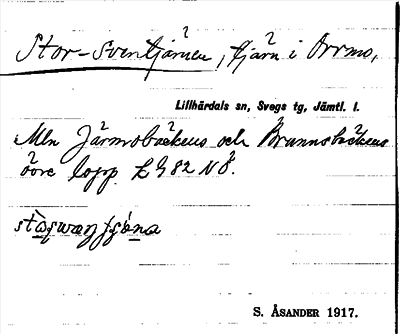 Stor-Sventjärnen, tjärn i Orrmo,
Lillhärdals sn, Svegs tg, Jämtl. l.
Mln Järmobäckens och Brunnsbäckens
övre lopp. L G 82 NÖ.
S. ÅSANDER 1917.